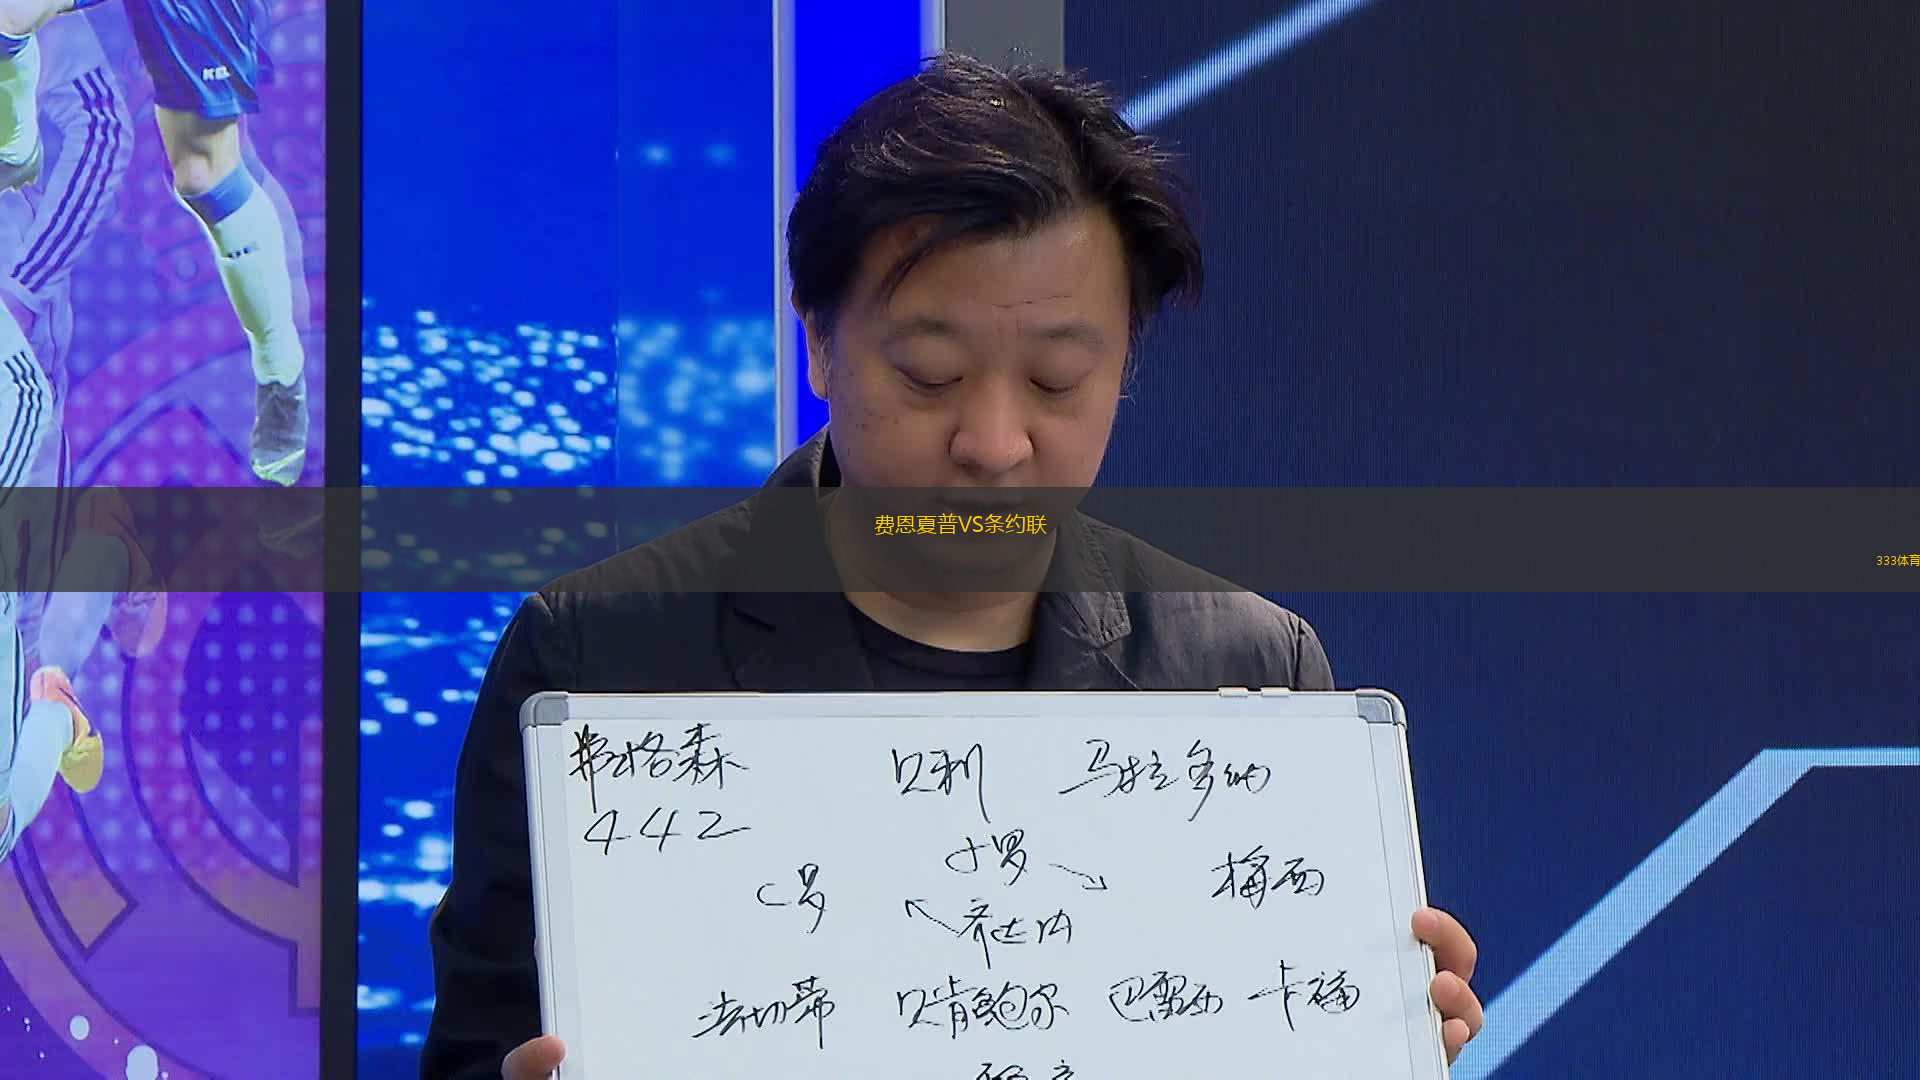 费恩夏普VS条约联
333体育
弗格森 贝利 马拉多纳
442
小罗
C罗 梅西
齐达内
法切蒂 贝肯鲍尔 巴雷西 卡福